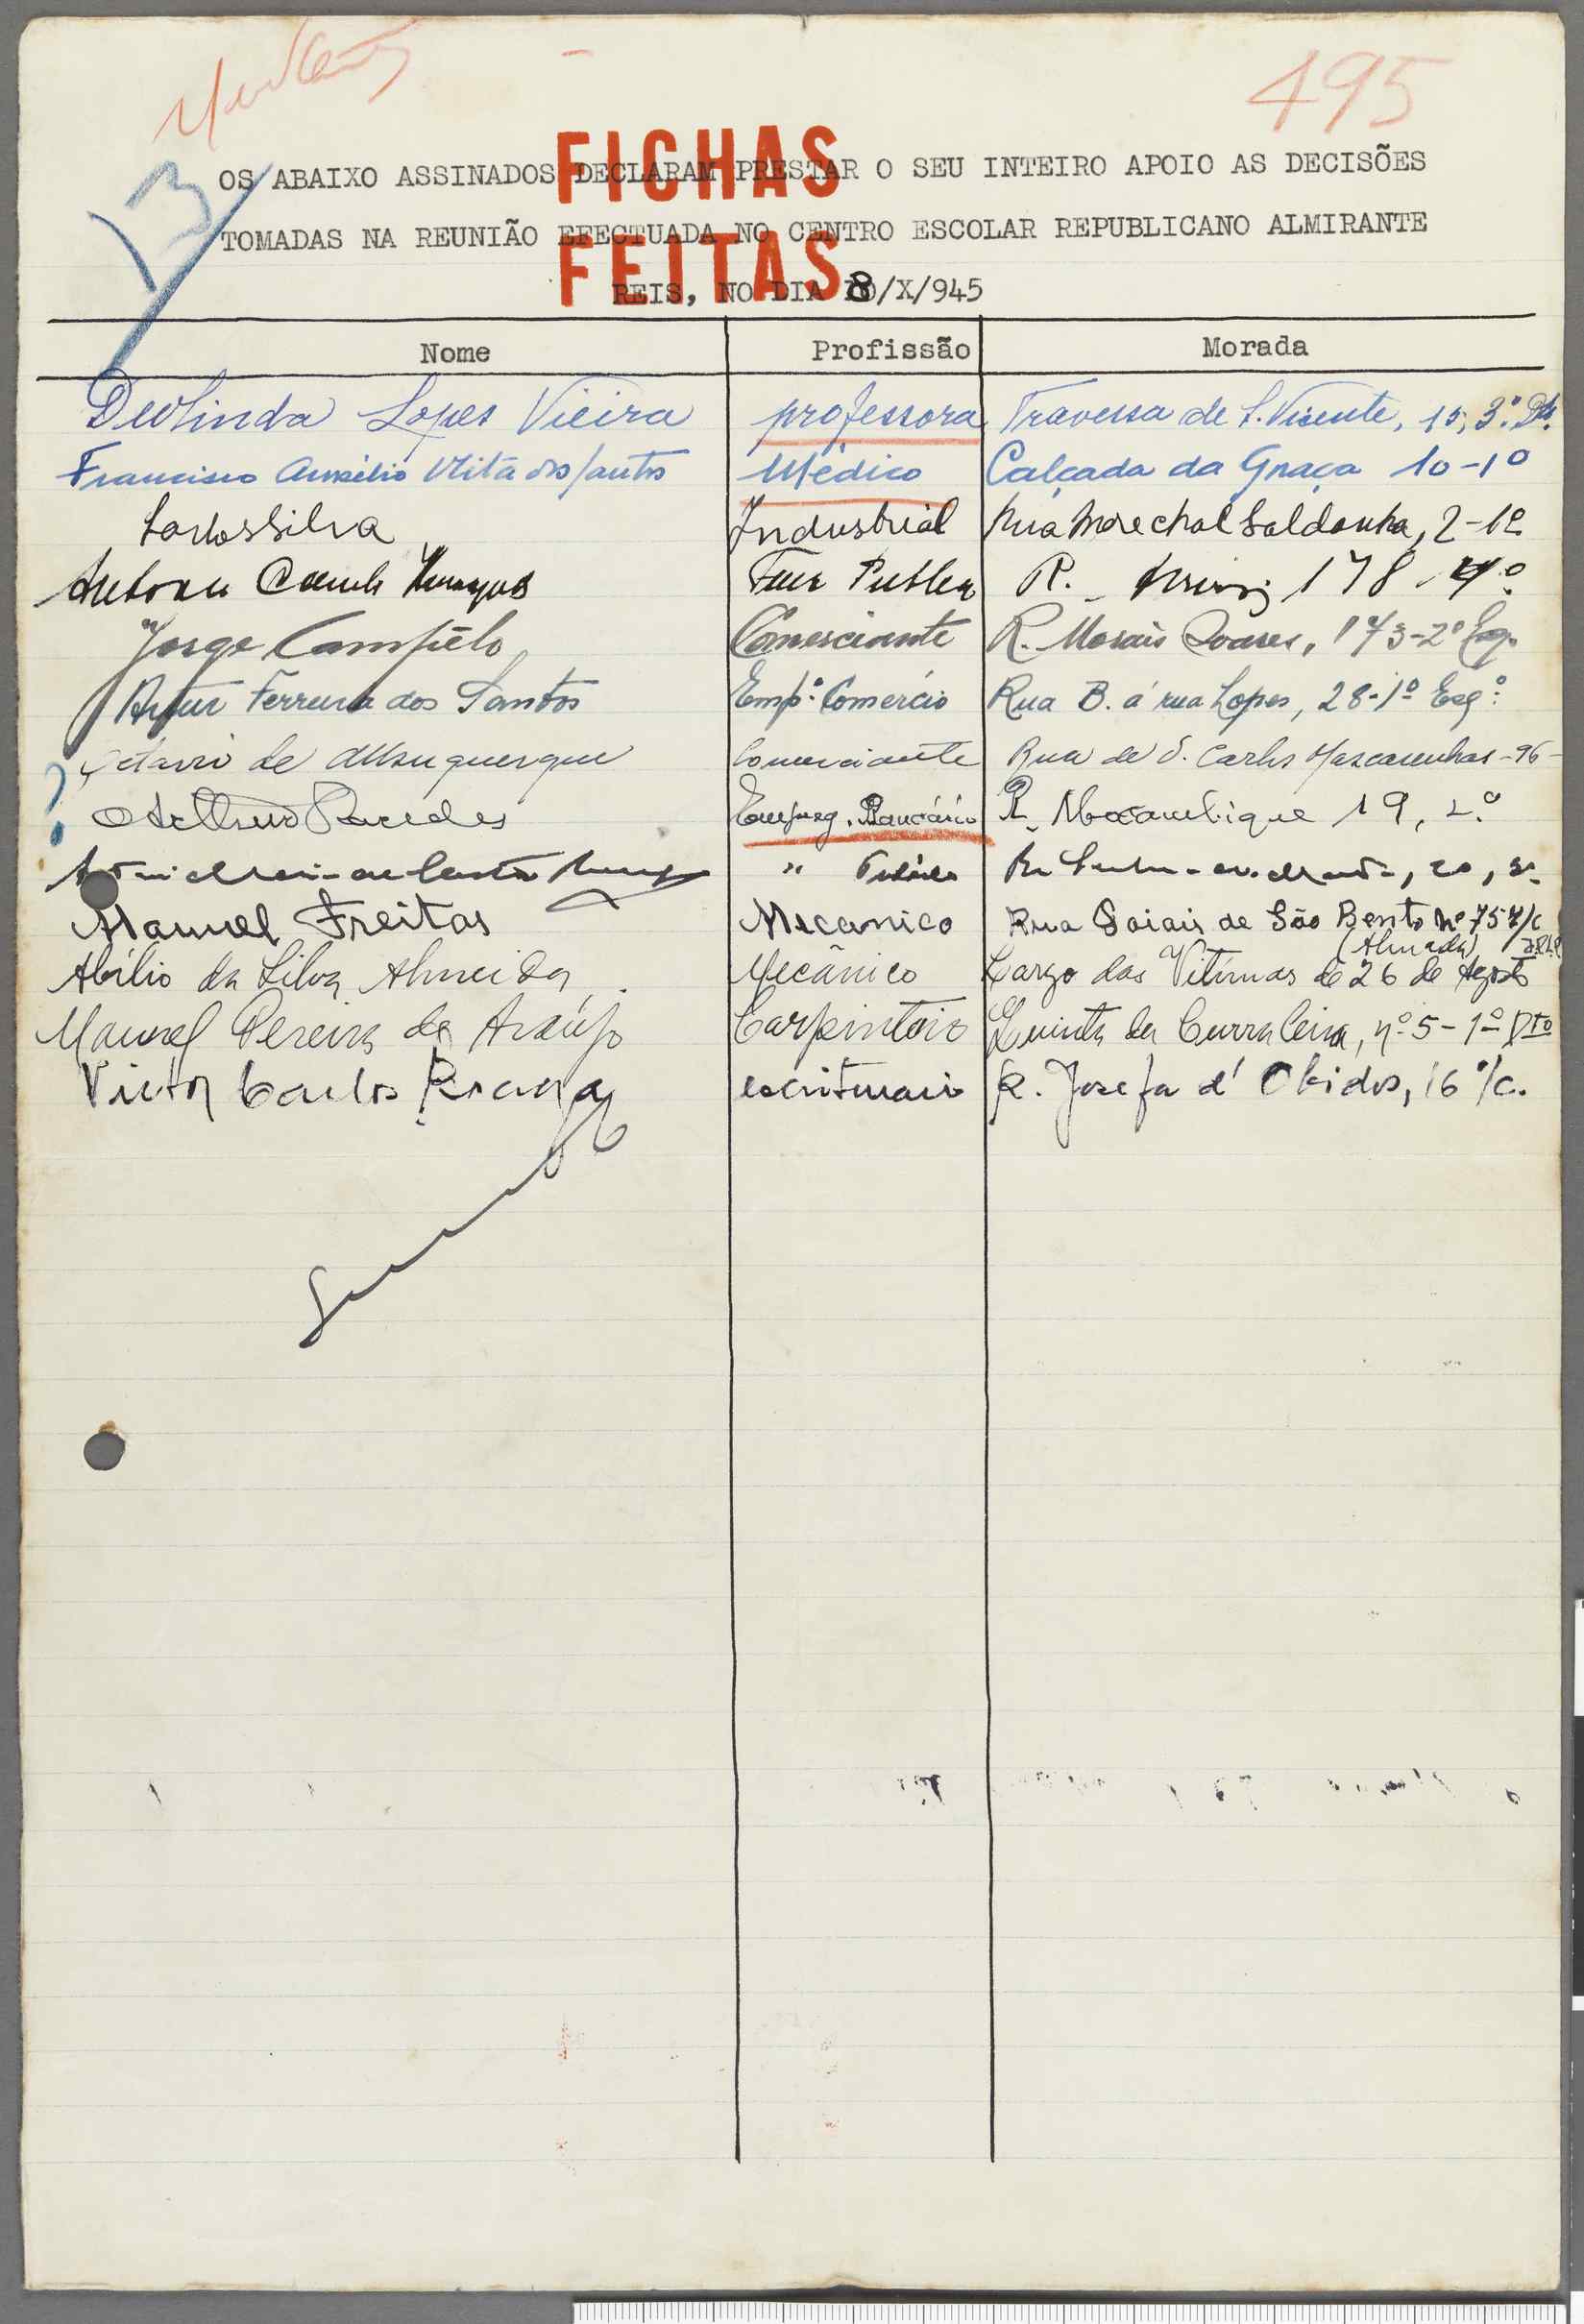 495
13
FICHAS
FEITAS
OS ABAIXO ASSINADOS DECLARAM PRESTAR O SEU INTEIRO APOIO AS DECISÕES
TOMADAS NA REUNIÃO EFECTUADA NO CENTRO ESCOLAR REPUBLICANO ALMIRANTE
REIS, NO DIA 8/X/945
Nome Profissão Morada
Deolinda Lopes Vieira professora Travessa de S. Vicente, 15, 3º. Dto.
Francisco Aurélio dos Santos Médico Calçada da Graça 10-1º
Carlos Silva Industrial Rua Marechal Saldanha, 2-1º
R. 178-4º
Jorge Campêlo Comerciante R. Morais Soares, 173-2º Esq.
Artur Ferreira dos Santos Empº. Comércio Rua B. á rua Lopes, 28-1º Esqº.
Octavio de Albuquerque Comerciante Rua de D. Carlos Mascarenhas-96-
? Paredes Empreg. Bancário R. Moçambique 19, 2.º
"
Manuel Freitas Mecanico Rua Saiais de São Bento Nº 75 r/c
Abílio da Silva Almeida Mecânico Largo das Vitimas de 26 de Agosto (Almada)
Manuel Pereira de Araújo Carpinteiro Quinta da Curraleira, nº 5-1º Dto
Victor Carlos Braga escriturario R. Josefa d'Obidos, 16 r/c.